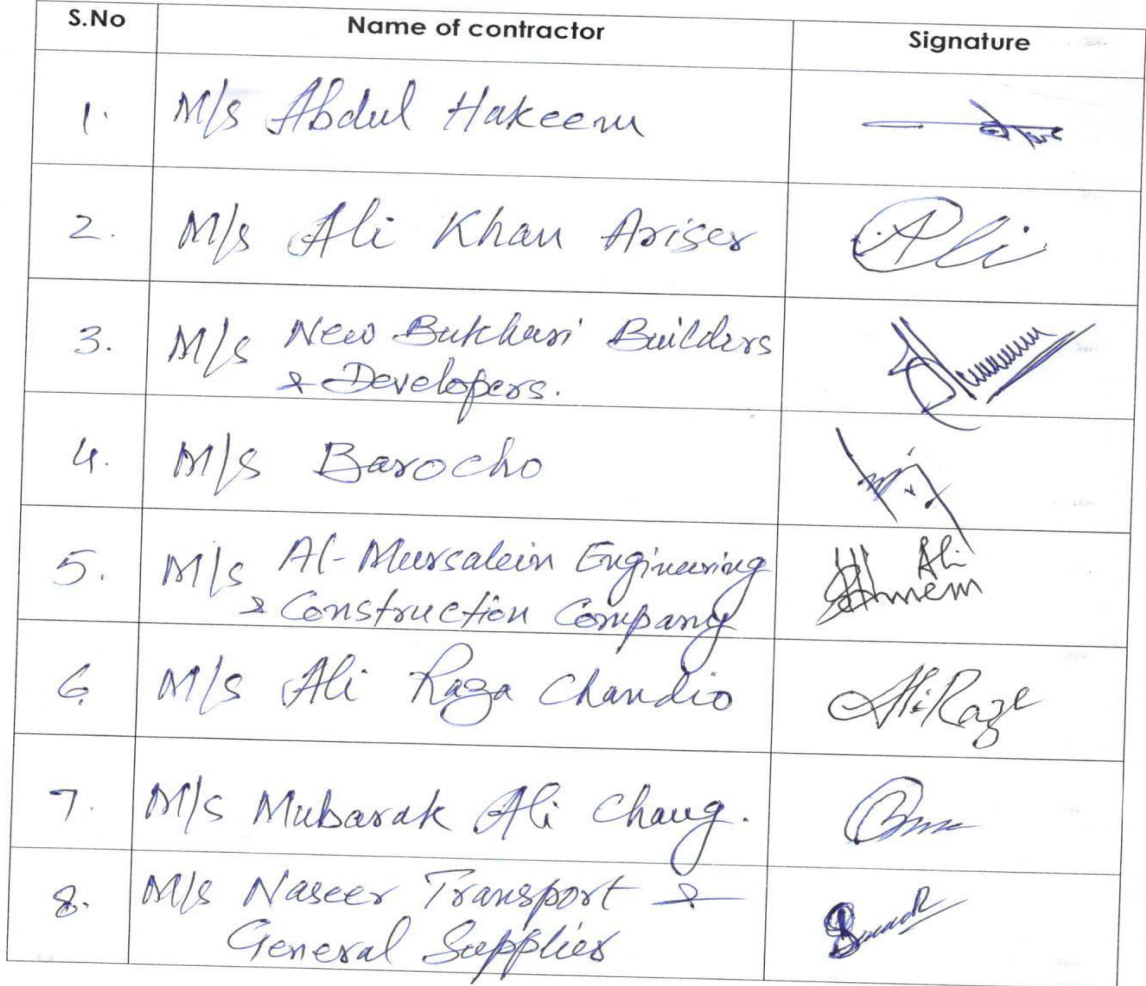 S.No Name of contractor Signature
1. M/s Abdul Hakeem
2. M/s Ali Khan Ariser Ali
3. M/s New Bukhari Builders
& Developers.
4. M/s Barocho
5. M/s Al-Mursalein Engineering Ali
& Construction Company
6 M/s Ali Raza Chandio Ali Raza
7. M/s Mubarak Ali Chang.
8. M/s Naseer Transport &
General Supplies